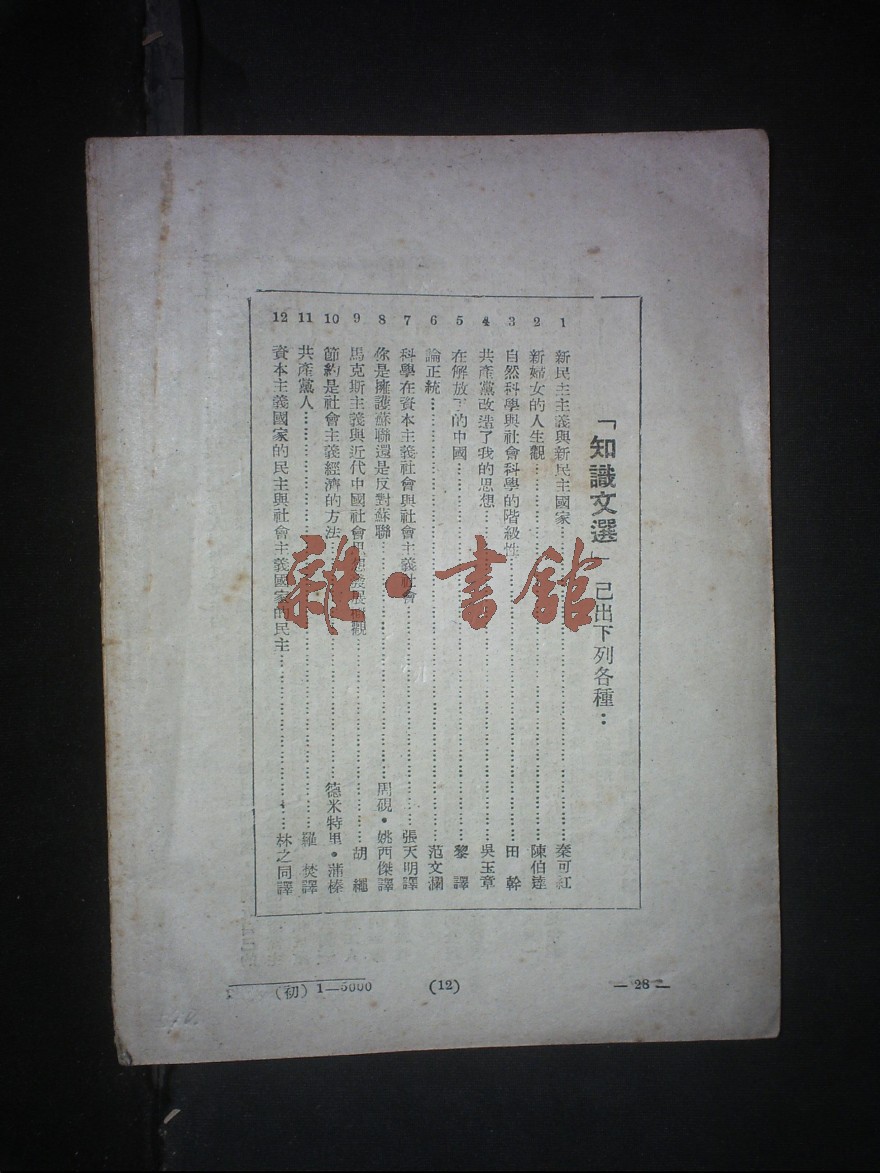 「知識文選」 已出下列各種：
1 新民主主義與新民主國家……秦可紅
2 新婦女的人生觀……陳伯達
3 自然科學與社會科學的階級性……田 幹
4 共產黨改造了我的思想……吳玉章
5 在解放下的中國……黎 譯
6 論正統……范文瀾
7 科學在資本主義社會與社會主義社會……張天明譯
8 你是擁護蘇聯還是反對蘇聯……周硯・姚西傑譯
9 馬克斯主義與近代中國社會思想發展概觀……胡 繩
10 節約是社會主義經濟的方法……德米特里・蒲榛
11 共產黨人……羅 焚譯
12 資本主義國家的民主與社會主義國家的民主……林之同譯
(初) 1—5000
(12)
— 28 —
雜・書館